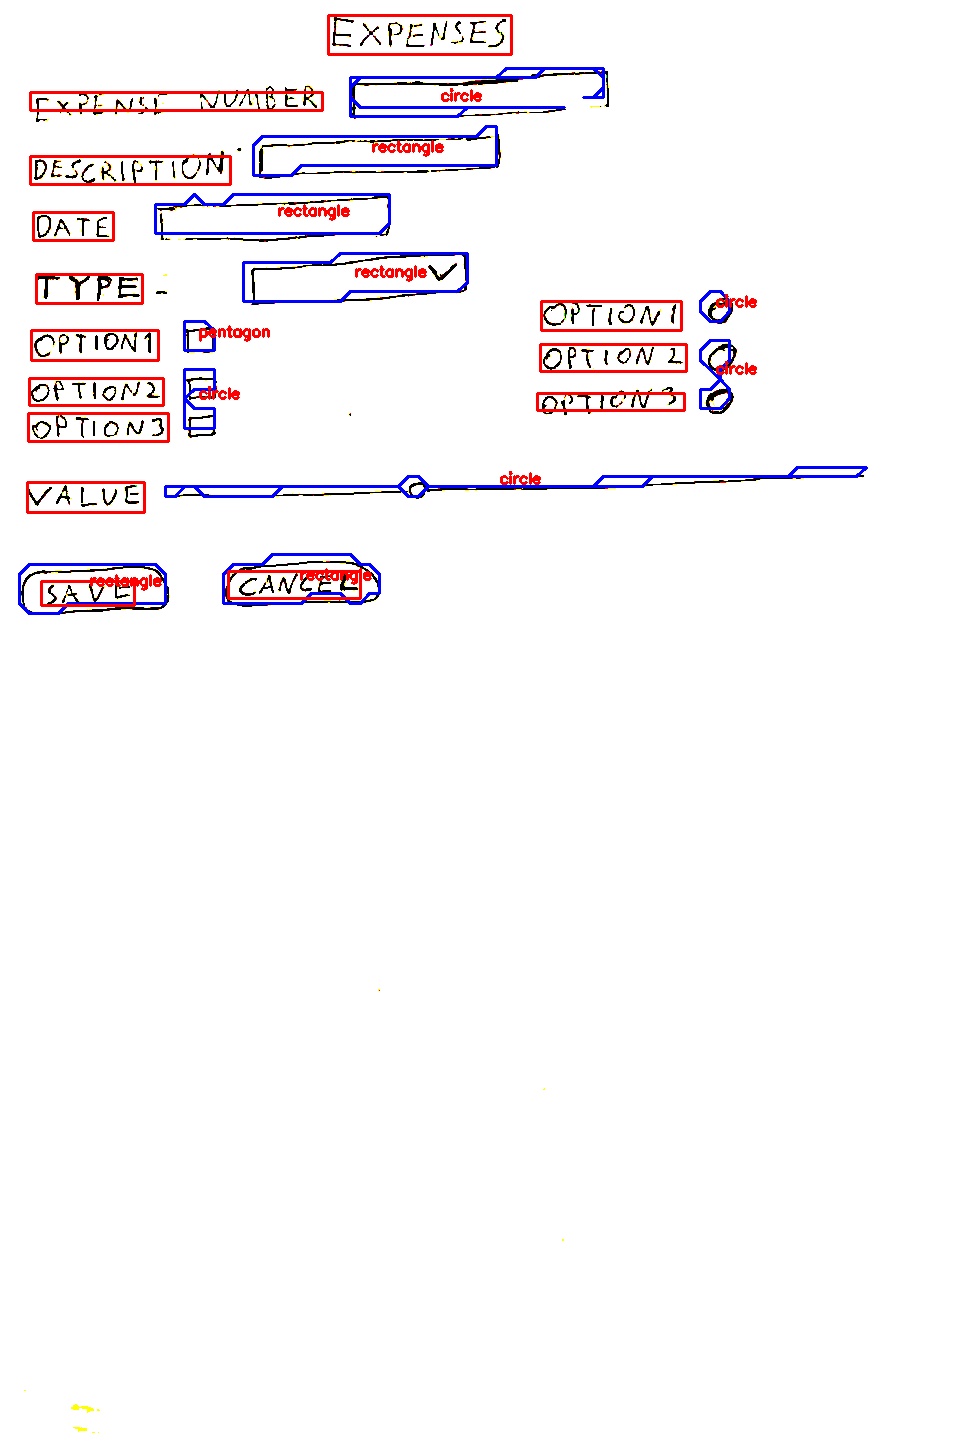 EXPENSES
EXPENSE NUMBER circle
DESCRIPTION rectangle
DATE rectangle
TYPE - rectangle
OPTION1 circle
OPTION1 pentagon
OPTION 2 circle
OPTION2 circle
OPTION 3
OPTION3
VALUE circle
SAVE rectangle CANCEL rectangle